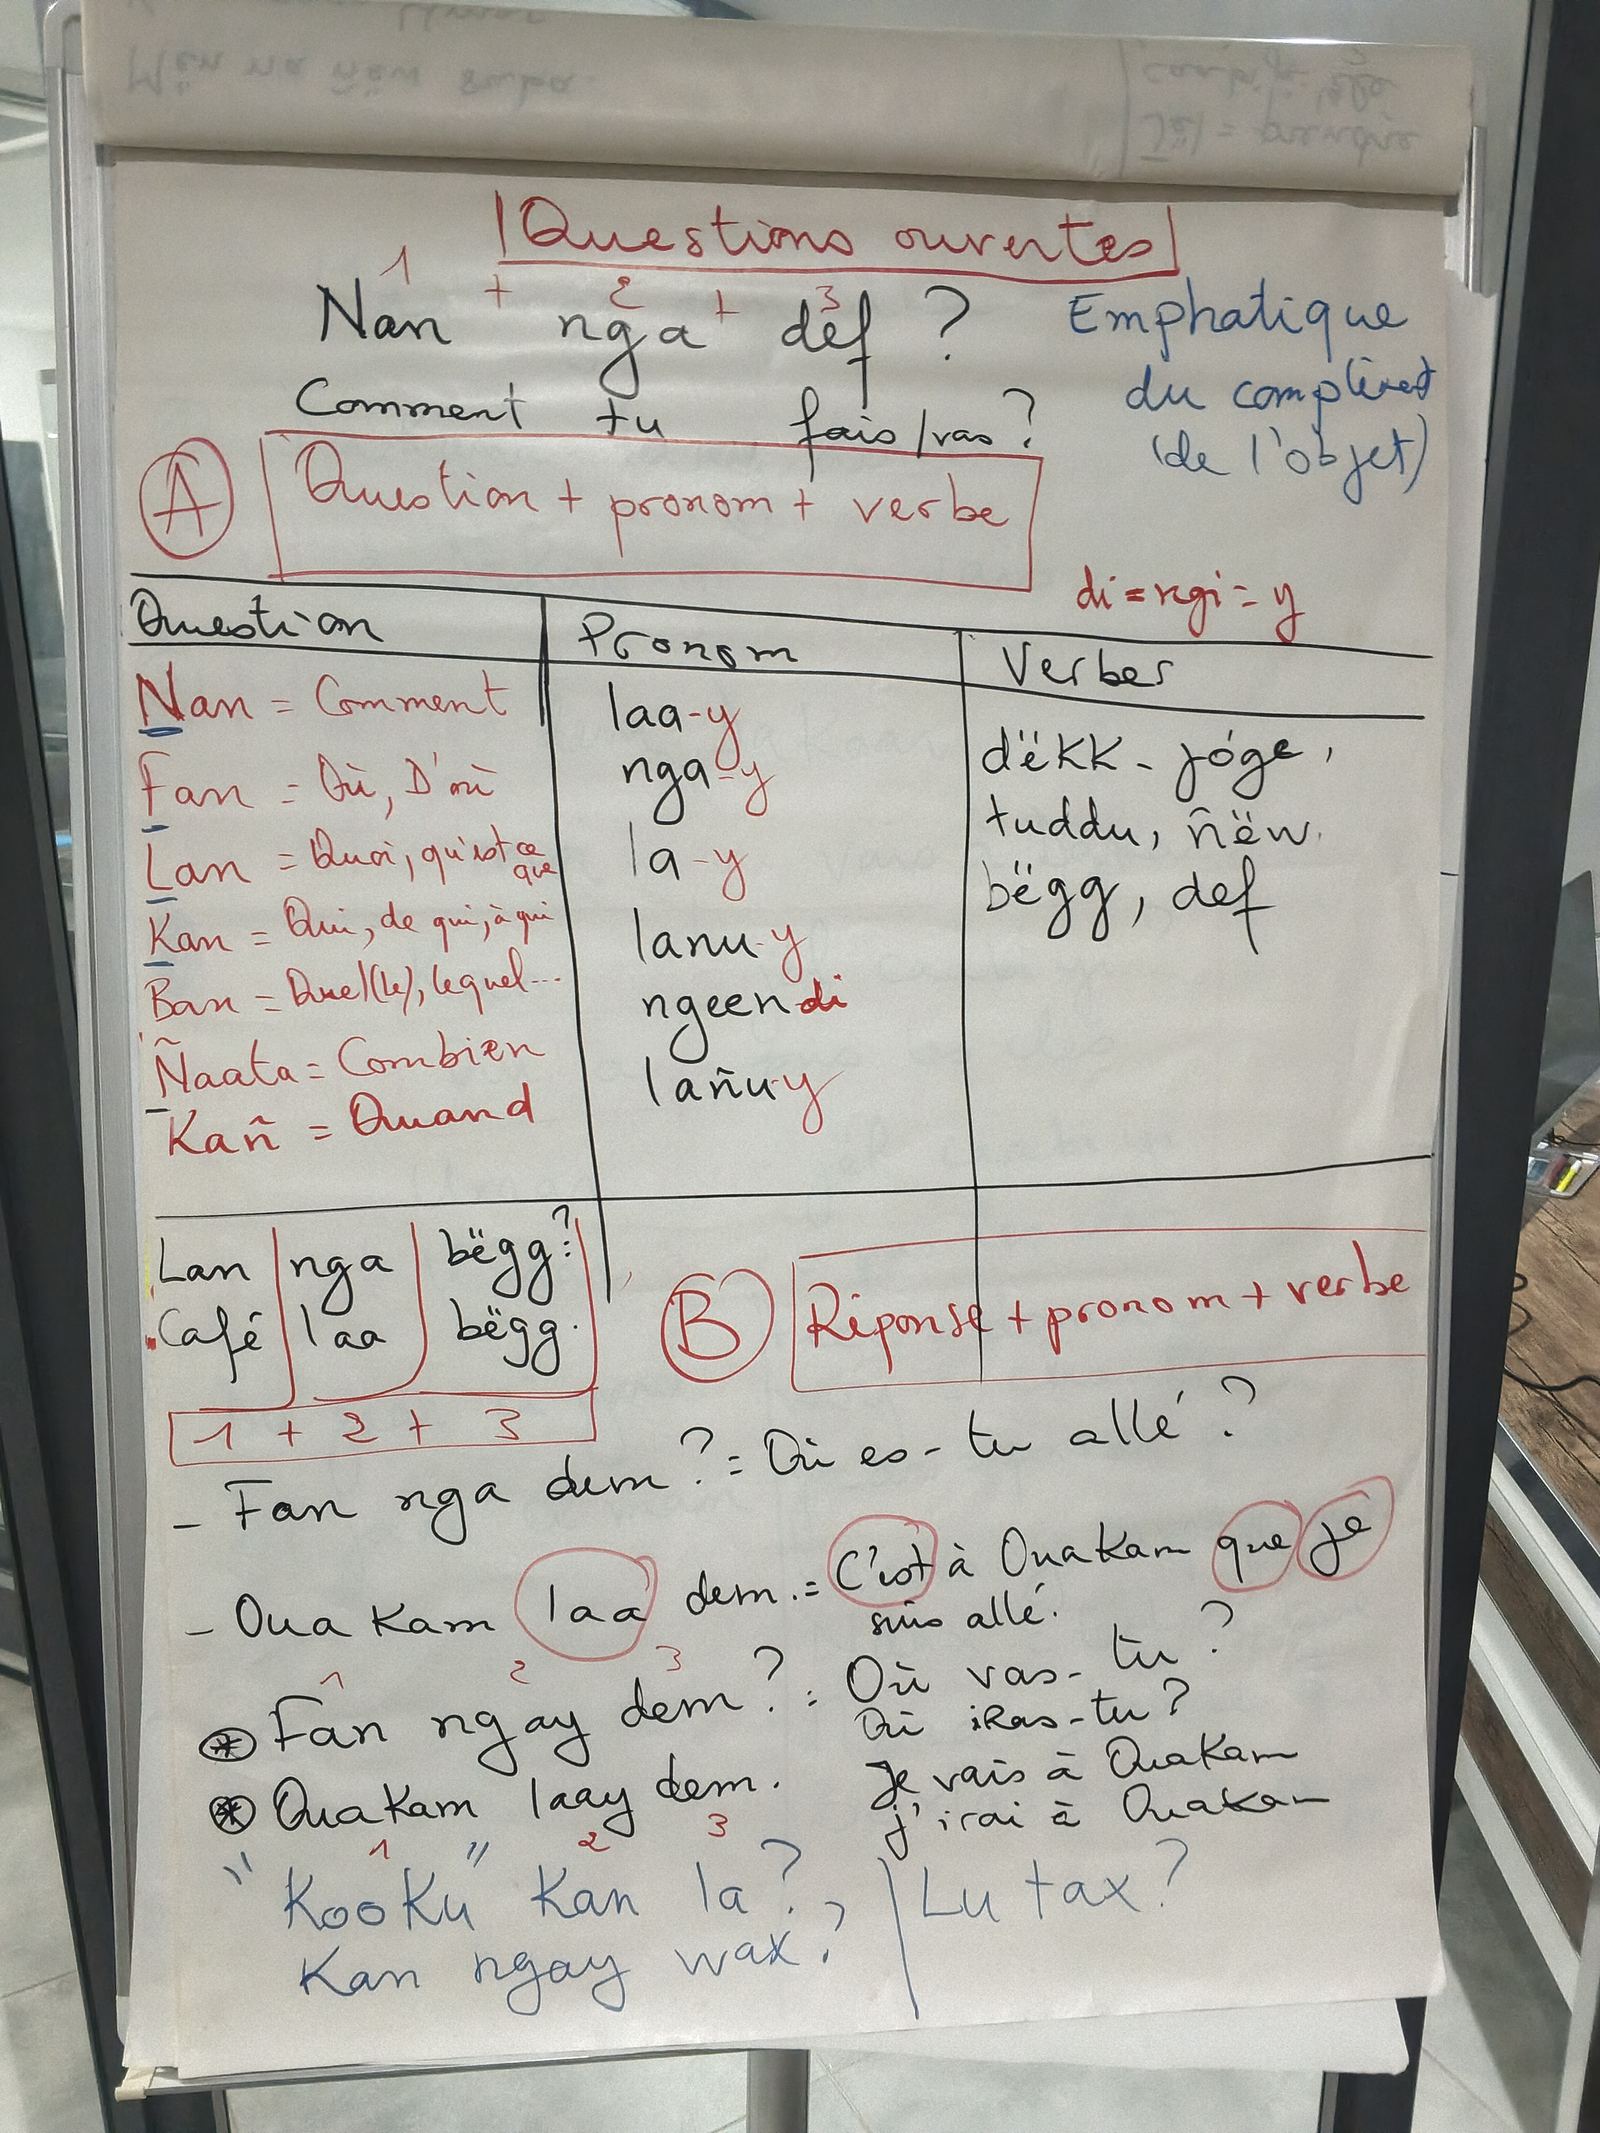 Questions ouvertes
1 + 2 + 3
Nan nga def ?
Comment tu fais/vas ?
Emphatique
du complément
(de l'objet)
A
Question + pronom + verbe
di = ngi = y
Question
Pronom
Verbes
Nan = Comment
Fan = Où, D'où
Lan = Quoi, qu'est ce que
Kan = Qui, de qui, à qui
Ban = Quel(le), lequel...
Ñaata = Combien
Kañ = Quand
laa-y
nga-y
la-y
lanu-y
ngeen di
lañu-y
dëkk - jóge,
tuddu, ñëw.
bëgg, def
Lan nga bëgg ?
Café laa bëgg.
1 + 2 + 3
B
Réponse + pronom + verbe
- Fan nga dem ? = Où es-tu allé ?
- Ouakam laa dem. = C'est à Ouakam que je
suis allé.
1 2 3
Fan ngay dem ? : Où vas-tu ?
Où iras-tu ?
Ouakam laay dem. Je vais à Ouakam
j'irai à Ouakam
1 2 3
"Kooku" Kan la ?
Kan ngay wax ?
Lu tax ?